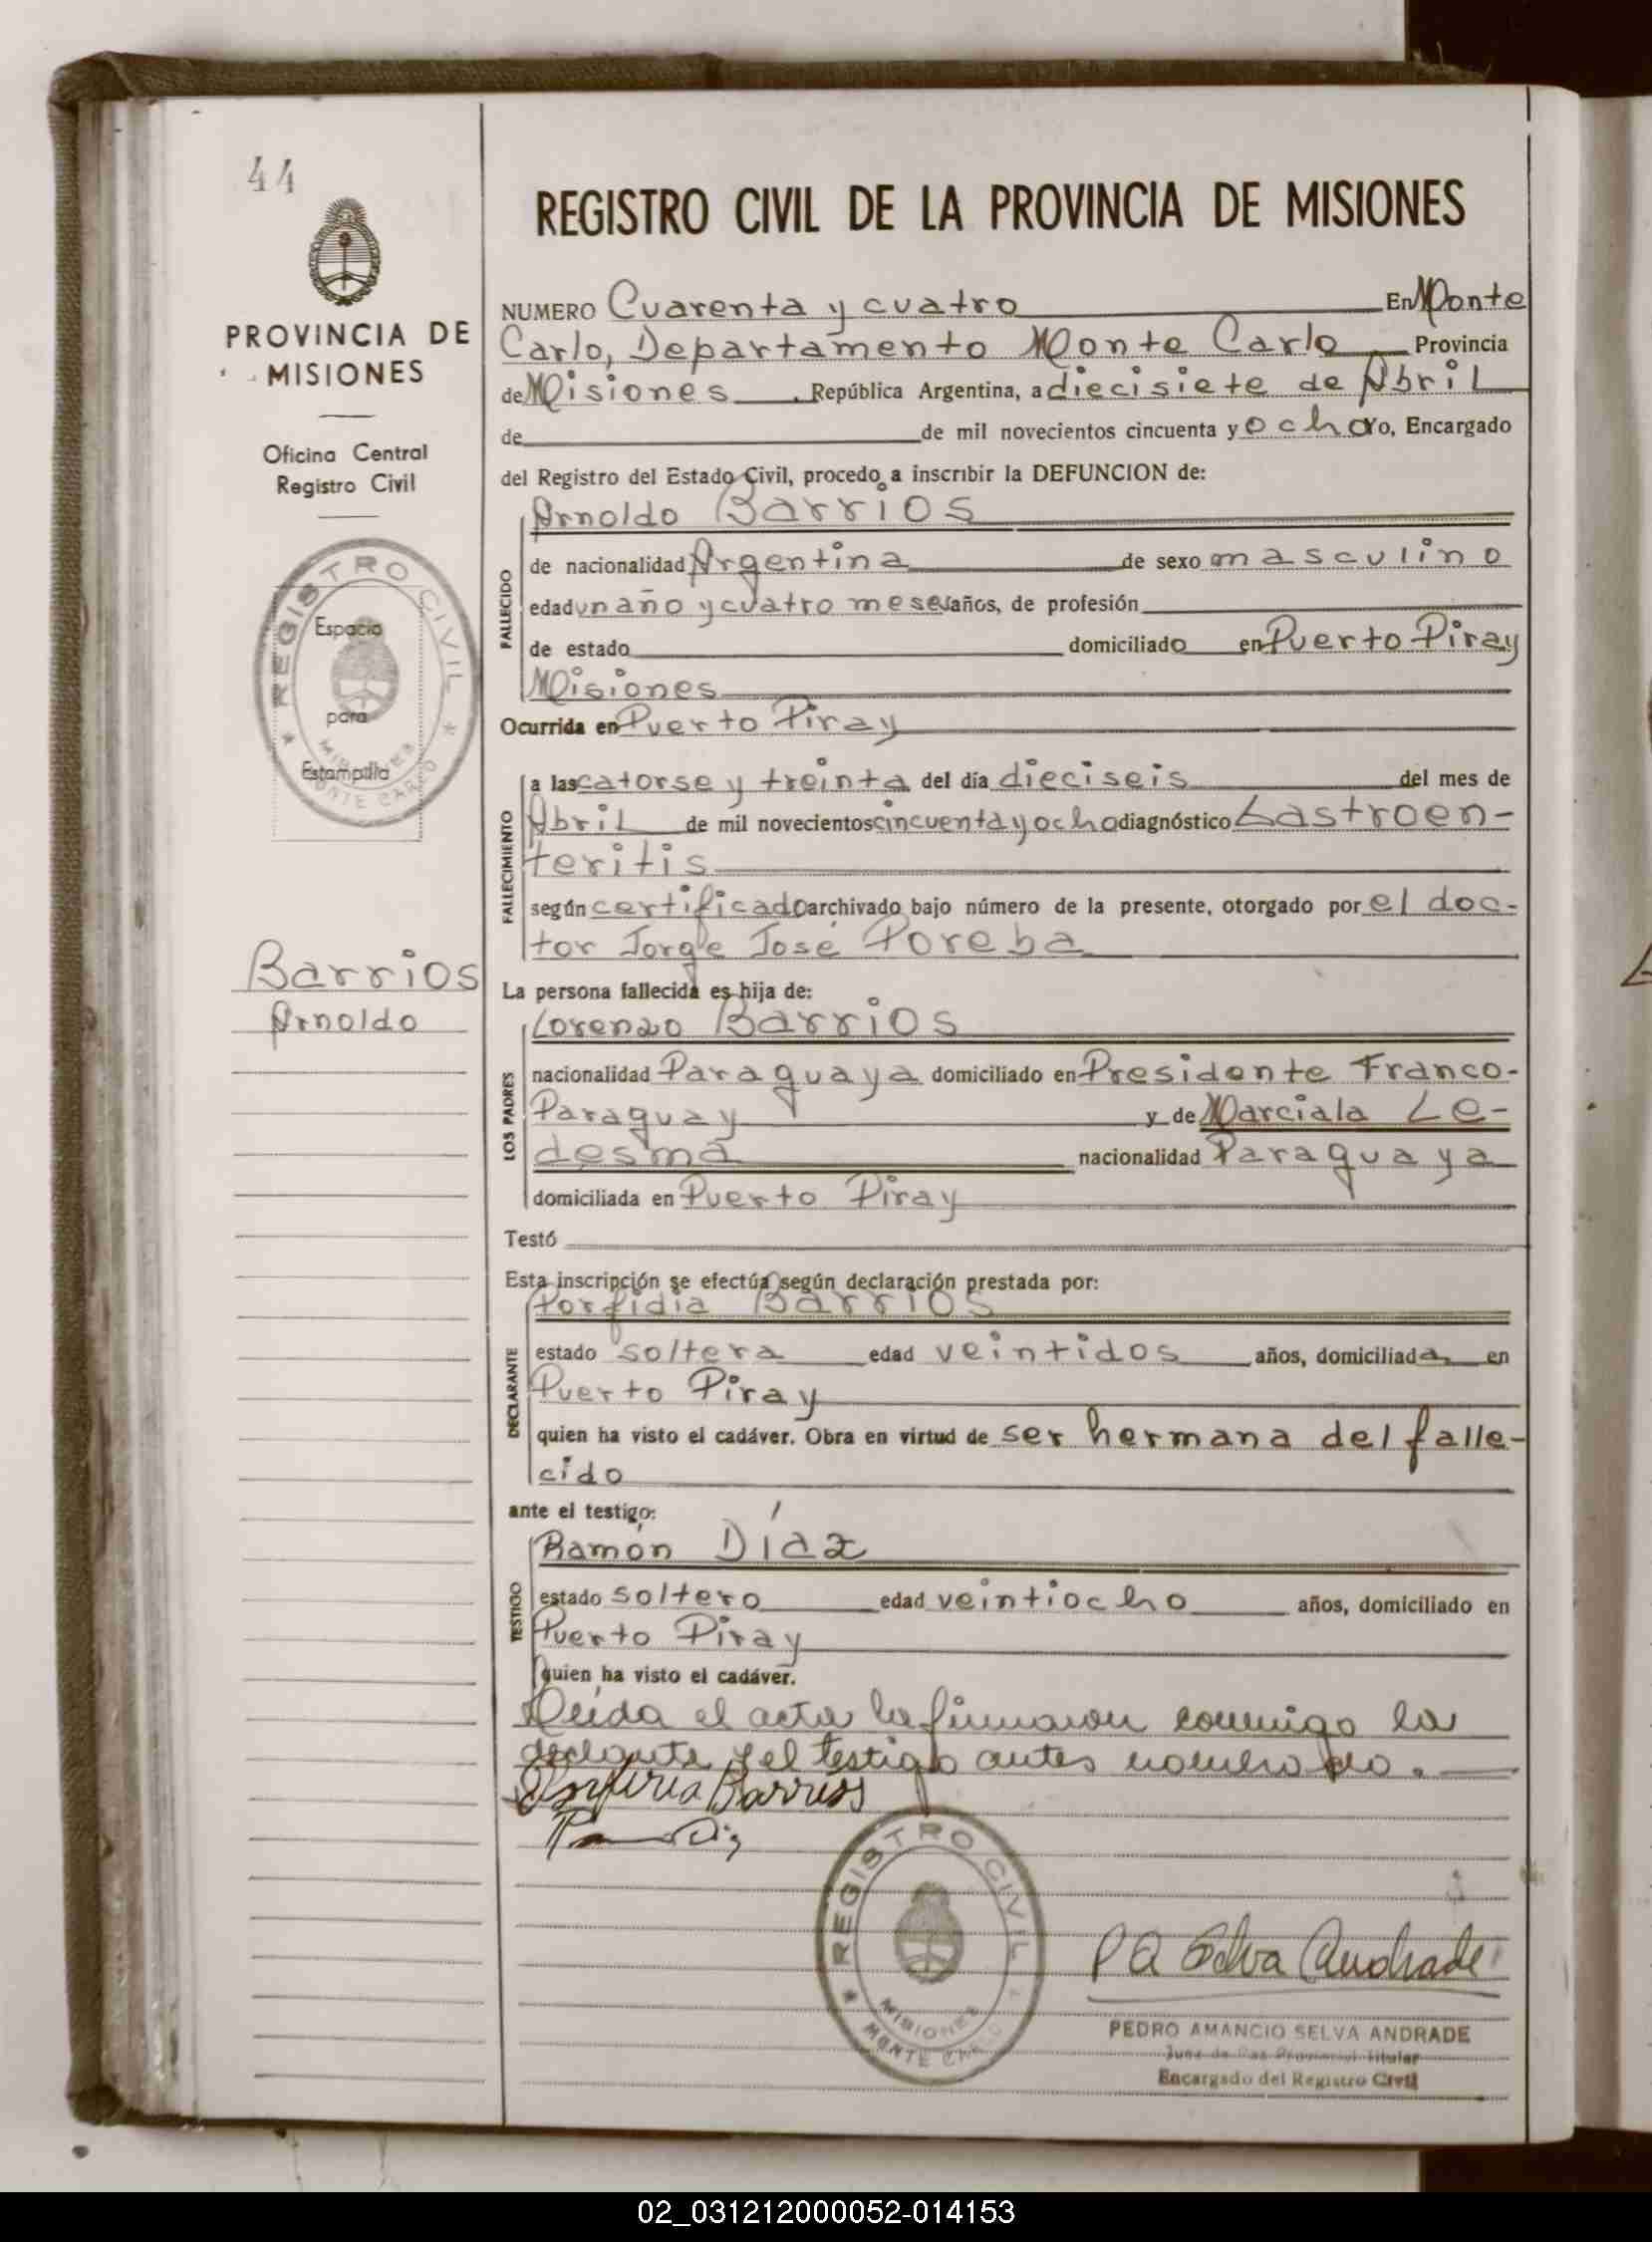 44
PROVINCIA DE
MISIONES
Oficina Central
Registro Civil
REGISTRO CIVIL
Espacio
para
Estampilla
MISIONES
MONTE CARLO
Barrios
Arnoldo
REGISTRO CIVIL DE LA PROVINCIA DE MISIONES
NUMERO Cuarenta y cuatro En Monte
Carlo, Departamento Monte Carlo Provincia
de Misiones, República Argentina, a diecisiete de Abril
de de mil novecientos cincuenta y ocho Yo, Encargado
del Registro del Estado Civil, procedo a inscribir la DEFUNCION de:
FALLECIDO
Arnoldo Barrios
de nacionalidad Argentina de sexo masculino
edad un año y cuatro meses años, de profesión
de estado domiciliado en Puerto Piray
Misiones
Ocurrida en Puerto Piray
FALLECIMIENTO
a las catorse y treinta del día dieciseis del mes de
Abril de mil novecientos cincuenta y ocho diagnóstico Gastroen-
teritis
según certificado archivado bajo número de la presente, otorgado por el doc-
tor Jorge José Poreba
La persona fallecida es hija de:
LOS PADRES
Lorenzo Barrios
nacionalidad Paraguaya domiciliado en Presidente Franco-
Paraguay y de Marciala Le-
desma nacionalidad Paraguaya
domiciliada en Puerto Piray
Testó
Esta inscripción se efectúa según declaración prestada por:
DECLARANTE
Porfidia Barrios
estado soltera edad veintidos años, domiciliada en
Puerto Piray
quien ha visto el cadáver. Obra en virtud de ser hermana del falle-
cido
ante el testigo:
TESTIGO
Ramón Díaz
estado soltero edad veintiocho años, domiciliado en
Puerto Piray
quien ha visto el cadáver.
Leida el acta la firmaron conmigo la
declarante y el testigo antes nombrado.
Porfiria Barrios
REGISTRO CIVIL
MISIONES
MONTE CARLO
P A Selva Andrade
PEDRO AMANCIO SELVA ANDRADE
Juez de Paz Provincial Titular
Encargado del Registro Civil
02_031212000052-014153